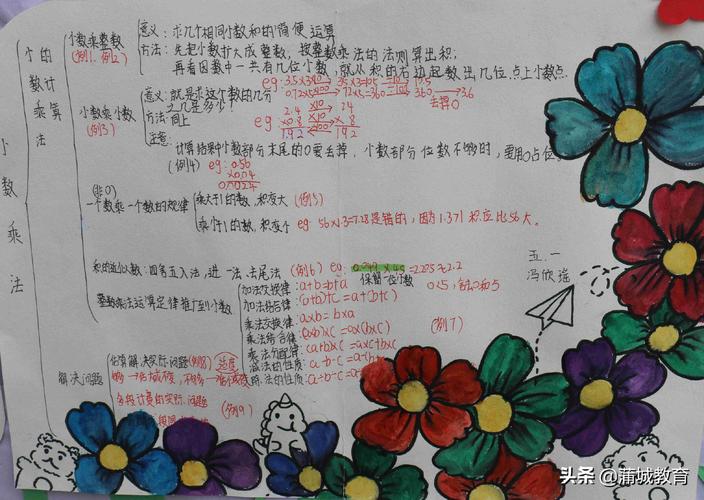 小数乘法
小数乘法的计算
小数乘整数
(例1、例2)
意义：求几个相同小数和的简便运算
方法：先把小数扩大成整数，按整数乘法的法则算出积；
再看因数中一共有几位小数，就从积的右边起数出几位，点上小数点.
小数乘小数
(例3)
意义：就是求这个数的几分之几是多少？
方法：同上
eg 2.4 ×10 24
×0.8 ×10 × 8
1.92 ÷100 192
注意：
计算结果中小数部分末尾的0要去掉，小数部分位数不够的，要用0占位
(例4) eg：0.56
×0.04
0.0224
(非0)
一个数乘一个数的规律
乘大于1的数，积变大 (例5)
乘小于1的数，积变小 eg：56×1.3=7.28是错的，因为1.3>1 积应比56大。
积的近似数：四舍五入法，进一法，去尾法 (例6) eg：
保留一位小数
整数乘法运算定律推广到小数
加法交换律：a+b=b+a
加法结合律：(a+b)+c=a+(b+c)
乘法交换律：a×b=b×a
乘法结合律：(a×b)×c=a×(b×c)
(例7)
乘法分配律
减法的性质：a-b-c=a-(b
除法的性质
解决问题
估算解决实际问题(例8)
分段计费的实际问题
(例9)
五.一
冯欣瑶
头条 @蒲城教育